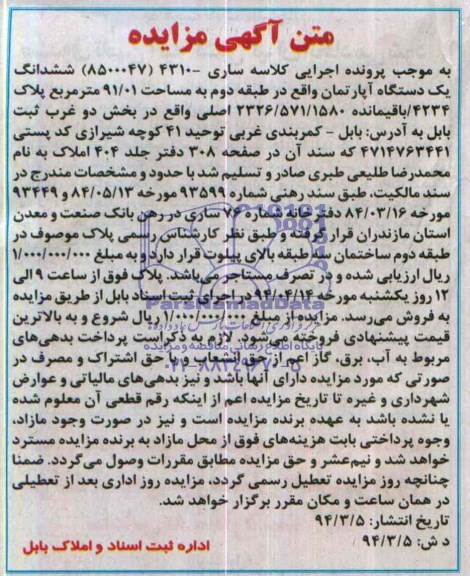 متن آگهی مزایده
به موجب پرونده اجرایی کلاسه ساری -۴۳۱۰ (۸۵۰۰۰۴۷) ششدانگ
یک دستگاه آپارتمان واقع در طبقه دوم به مساحت ۹۱/۰۱ مترمربع پلاک
۴۲۳۴/باقیمانده ۲۳۲۶/۵۷۱/۱۵۸۰ اصلی واقع در بخش دو غرب ثبت
بابل به آدرس: بابل - کمربندی غربی توحید ۴۱ کوچه شیرازی کد پستی
۴۷۱۴۷۶۳۴۴۱ که سند آن در صفحه ۳۰۸ دفتر جلد ۴۰۴ املاک به نام
محمدرضا طلیعی طبری صادر و تسلیم شد با حدود و مشخصات مندرج در
سند مالکیت، طبق سند رهنی شماره ۹۳۵۹۹ مورخه ۸۴/۰۵/۱۳ و ۹۳۴۴۹
مورخه ۸۴/۰۳/۱۶ دفترخانه شماره ۷۶ ساری در رهن بانک صنعت و معدن
استان مازندران قرار گرفته و طبق نظر کارشناس رسمی پلاک موصوف در
طبقه دوم ساختمان سه طبقه بالای پیلوت قرار دارد و به مبلغ ۱/۰۰۰/۰۰۰/۰۰۰
ریال ارزیابی شده و در تصرف مستاجر می باشد. پلاک فوق از ساعت ۹ الی
۱۲ روز یکشنبه مورخه ۹۴/۰۴/۱۴ در اجرای ثبت اسناد بابل از طریق مزایده
به فروش می رسد. مزایده از مبلغ ۱/۰۰۰/۰۰۰/۰۰۰ ریال شروع و به بالاترین
قیمت پیشنهادی فروخته می شود. لازم به ذکر است پرداخت بدهی های
مربوط به آب، برق، گاز اعم از حق انشعاب و یا حق اشتراک و مصرف در
صورتی که مورد مزایده دارای آنها باشد و نیز بدهی های مالیاتی و عوارض
شهرداری و غیره تا تاریخ مزایده اعم از اینکه رقم قطعی آن معلوم شده
یا نشده باشد به عهده برنده مزایده است و نیز در صورت وجود مازاد،
وجوه پرداختی بابت هزینه های فوق از محل مازاد به برنده مزایده مسترد
خواهد شد و نیم عشر و حق مزایده مطابق مقررات وصول می گردد. ضمنا
چنانچه روز مزایده تعطیل رسمی گردد، مزایده روز اداری بعد از تعطیلی
در همان ساعت و مکان مقرر برگزار خواهد شد.
تاریخ انتشار: ۹۴/۳/۵
د ش: ۹۴/۳/۵
اداره ثبت اسناد و املاک بابل
ParsNamadData
۰۲۱-۸۸۳۴۹۶۷۰-۵